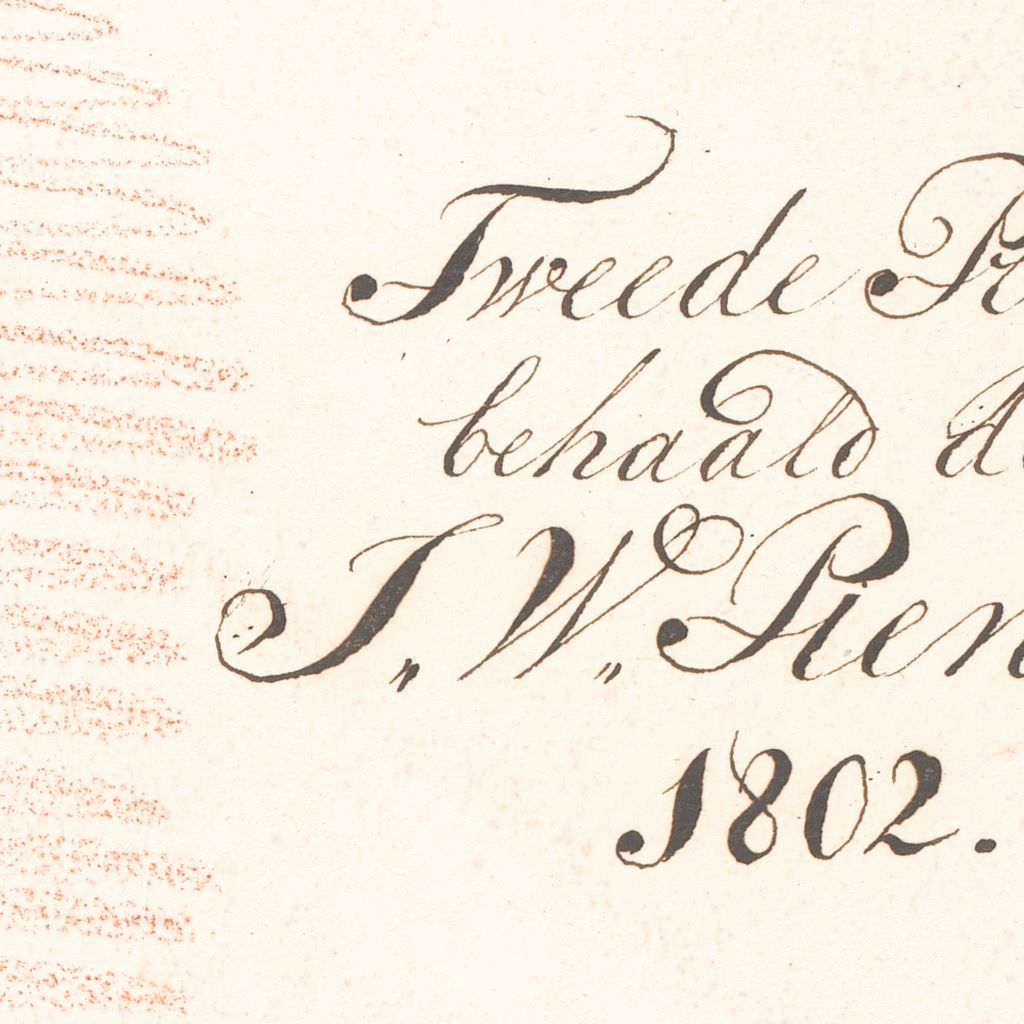 Tweede
behaald
J. W. Pien
1802.